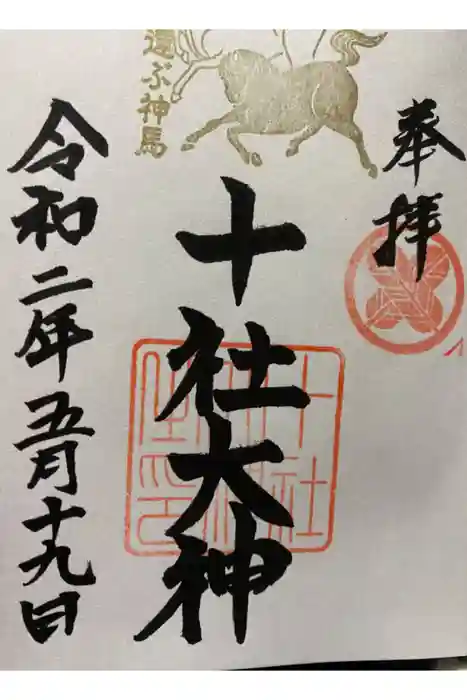 奉拝
運ぶ神馬
十社大神
令和二年五月十九日